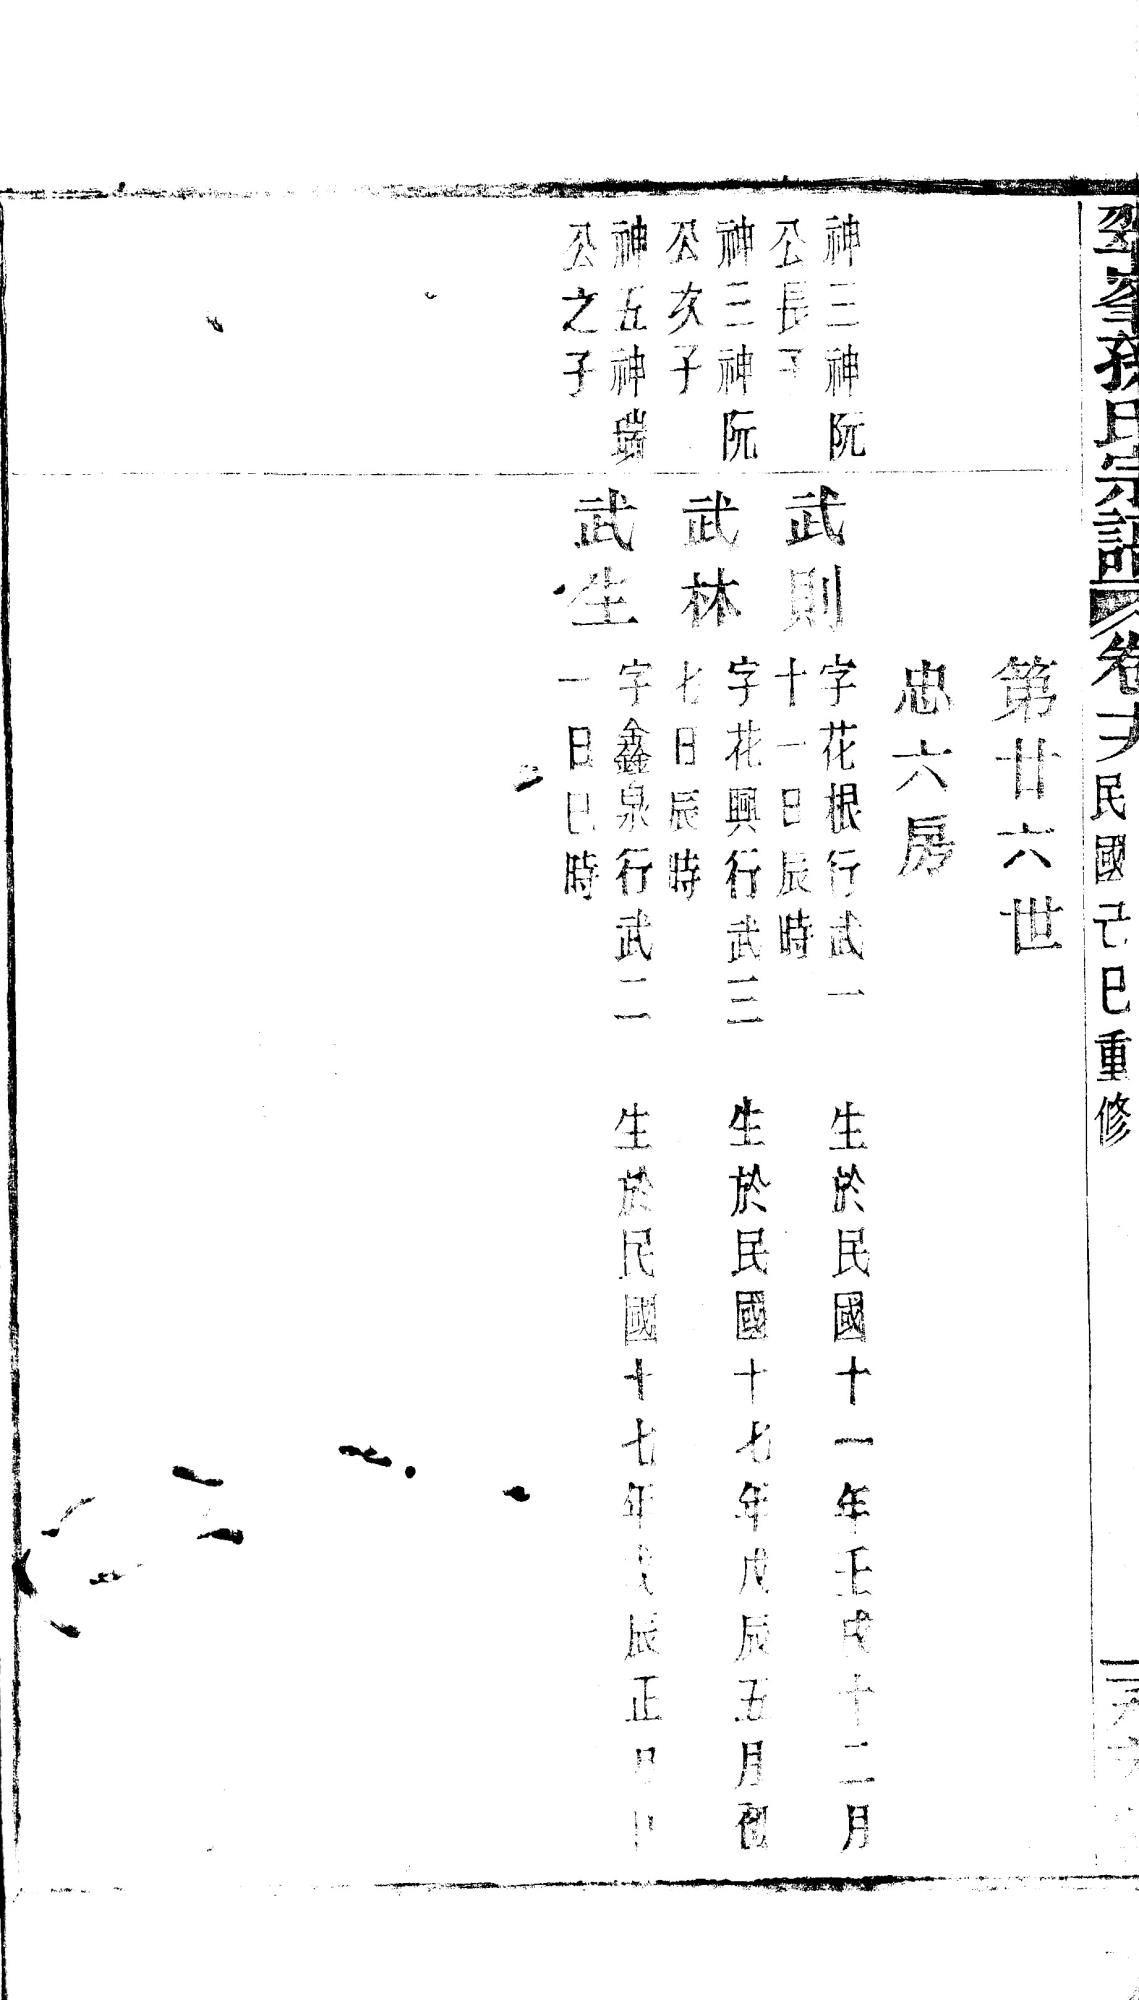 峯孫氏宗譜 卷 民國己巳重修
第廿六世
忠六房
神三神阮
公長子
武則
字花根行武一 生於民國十一年壬戌十二月
十一日辰時
神三神阮
公次子
武林
字花興行武三 生於民國十七年戊辰五月初
七日辰時
神五神瑞
公之子
武生
字鑫泉行武二 生於民國十七年戊辰正月
一日巳時